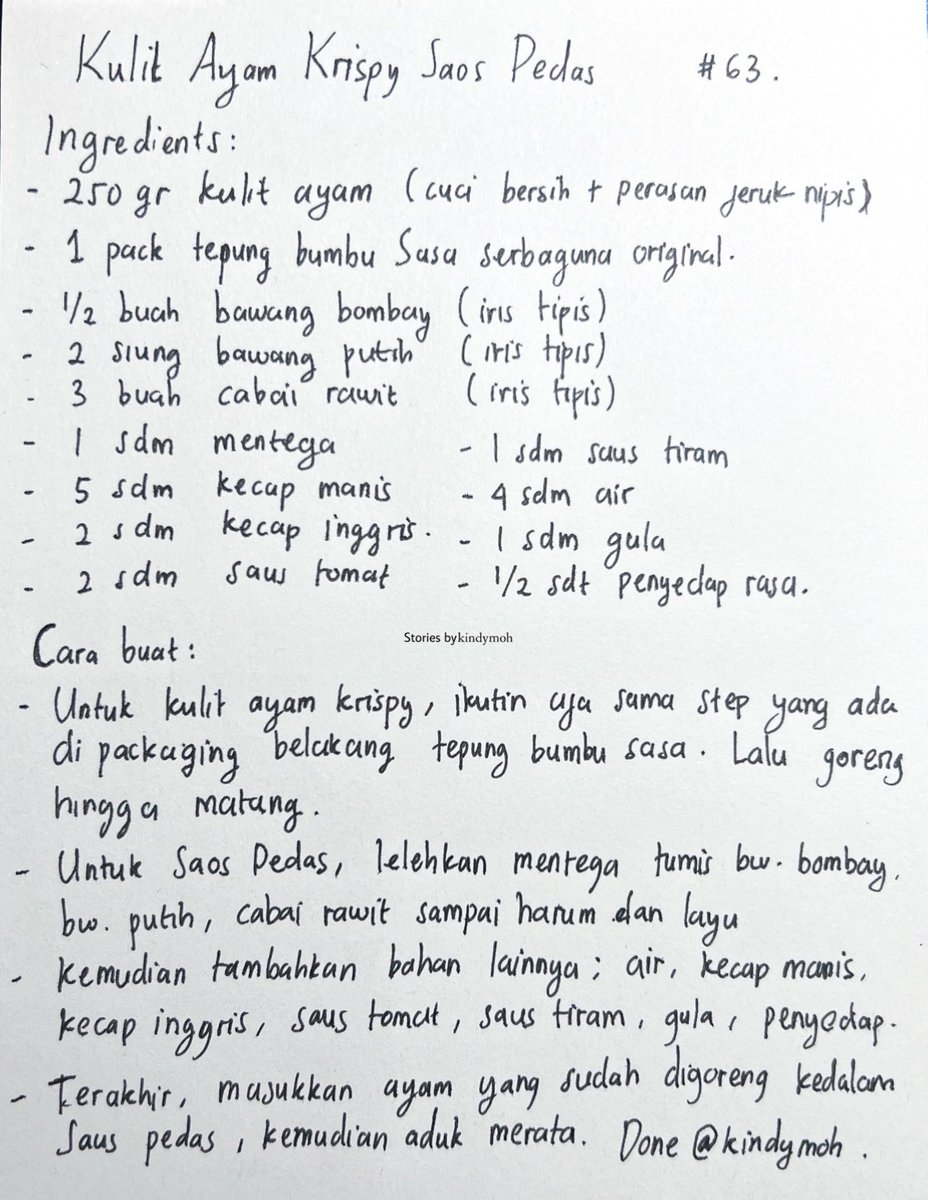 Kulit Ayam Krispy Saos Pedas #63.
Ingredients:
- 250 gr kulit ayam (cuci bersih + perasan jeruk nipis)
- 1 pack tepung bumbu Sasa serbaguna original.
- 1/2 buah bawang bombay (iris tipis)
- 2 siung bawang putih (iris tipis)
- 3 buah cabai rawit (iris tipis)
- 1 sdm mentega - 1 sdm saus tiram
- 5 sdm kecap manis - 4 sdm air
- 2 sdm kecap inggris. - 1 sdm gula
- 2 sdm saus tomat - 1/2 sdt penyedap rasa.
Stories by kindymoh
Cara buat:
- Untuk kulit ayam krispy, ikutin aja sama step yang ada
di packaging belakang tepung bumbu sasa. Lalu goreng
hingga matang.
- Untuk Saos Pedas, lelehkan mentega tumis bw. bombay,
bw. putih, cabai rawit sampai harum dan layu
- Kemudian tambahkan bahan lainnya; air, kecap manis,
kecap inggris, saus tomat, saus tiram, gula, penyedap.
- Terakhir, masukkan ayam yang sudah digoreng kedalam
saus pedas, kemudian aduk merata. Done @kindymoh.